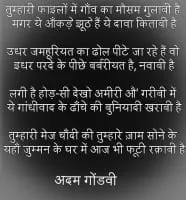 तुम्हारी फाइलों में गाँव का मौसम गुलाबी है
मगर ये आँकड़े झूठे हैं ये दावा किताबी है
उधर जमहूरियत का ढोल पीटे जा रहे हैं वो
इधर परदे के पीछे बर्बरीयत है, नवाबी है
लगी है होड़-सी देखो अमीरी औ' गरीबी में
ये गांधीवाद के ढाँचे की बुनियादी खराबी है
तुम्हारी मेज चाँदी की तुम्हारे ज़ाम सोने के
यहाँ जुम्मन के घर में आज भी फूटी रक़ाबी है
अदम गोंडवी